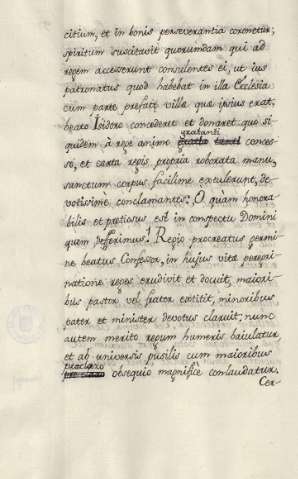 citium, et in bonis perseverantia coronetur;
spiritum suscitavit quorumdam qui ad
regem accesserunt consulentes ei, ut ius
patronatus quod habebat in illa Ecclesia
cum parte prefatę villę quę ipsius erat,
beato Isidoro concederet et donaret quo si-
quidem à rege animo gratanti conces-
so, et carta regis propria roborata manu,
sanctum corpus facilime extulerunt, de
votissimè conclamantes: O quàm honora-
bilis et pretiosus est in conspectu Domini
quem defferimus! Regio procreatus germi-
ne beatus Confessor, in hujus vitę peregri-
natione reges erudivit et docuit, maiori-
bus pastor vel frater extitit, minoribus
pater et minister devotus claruit; nunc
autem merito regum humeris baiulatur,
et ab universis pusilis cum maioribus
pręclaro obsequio magnificè conlaudatur.
Cer-